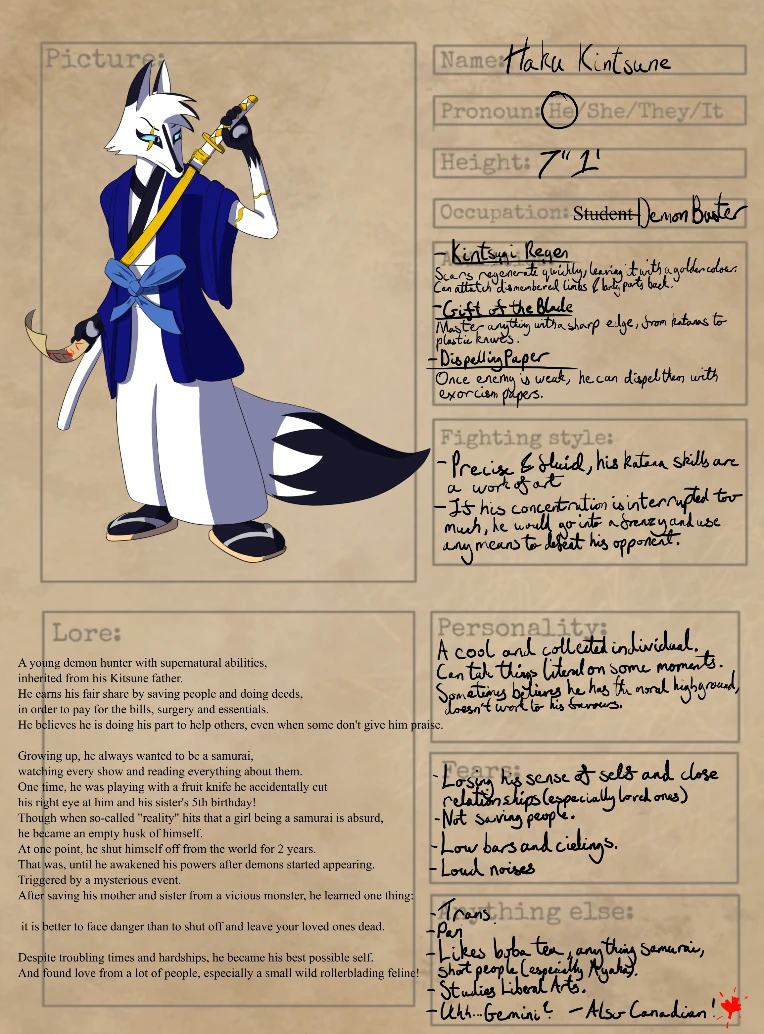 Picture:
Name: Haku Kintsune
Pronoun: He/She/They/It
Height: 7" 1'
Occupation: Student Demon Buster
- Kintsugi Regen
Scars regenerate quickly, leaving it with a golden colour.
Can attatch dismembered limbs & body parts back.
- Gift of the Blade
Master anything with a sharp edge, from katanas to
plastic knives.
- Dispelling Paper
Once enemy is weak, he can dispel them with
exorcism papers.
Fighting style:
- Precise & fluid, his katana skills are
a work of art
- If his concentration is interrupted too
much, he would go into a frenzy and use
any means to defeat his opponent.
Lore:
A young demon hunter with supernatural abilities,
inherited from his Kitsune father.
He earns his fair share by saving people and doing deeds,
in order to pay for the bills, surgery and essentials.
He believes he is doing his part to help others, even when some don't give him praise.
Growing up, he always wanted to be a samurai,
watching every show and reading everything about them.
One time, he was playing with a fruit knife he accidentally cut
his right eye at him and his sister's 5th birthday!
Though when so-called "reality" hits that a girl being a samurai is absurd,
he became an empty husk of himself.
At one point, he shut himself off from the world for 2 years.
That was, until he awakened his powers after demons started appearing.
Triggered by a mysterious event.
After saving his mother and sister from a vicious monster, he learned one thing:
it is better to face danger than to shut off and leave your loved ones dead.
Despite troubling times and hardships, he became his best possible self.
And found love from a lot of people, especially a small wild rollerblading feline!
Personality:
A cool and collected individual.
Can tak things literal on some moments.
Sometimes believes he has the moral highground,
doesn't work to his favours.
Fears:
- Losing his sense of self and close
relationships (especially loved ones)
- Not saving people.
- Low bars and cielings.
- Loud noises
Anything else:
- Trans
- Pan
- Likes boba tea, anything samurai,
short people (especially Ayaka).
- Studies Liberal Arts.
- Uhh... Gemini? - Also Canadian!